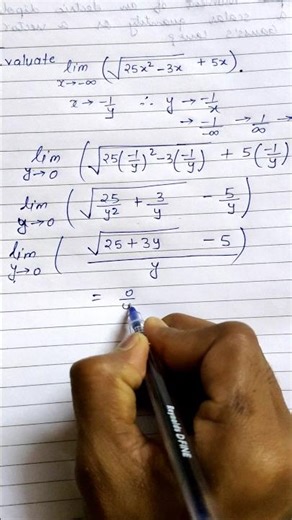 valuate lim x→-∞ (√25x²-3x + 5x).
x → -1/y ∴ y → -1/x
→ -1/-∞ → 1/∞ →
lim y→0 (√25(-1/y)²-3(-1/y) + 5(-1/y)
lim y→0 (√25/y² + 3/y - 5/y)
lim y→0 (√25+3y - 5 / y)
= 0/
Reynolds DFINE